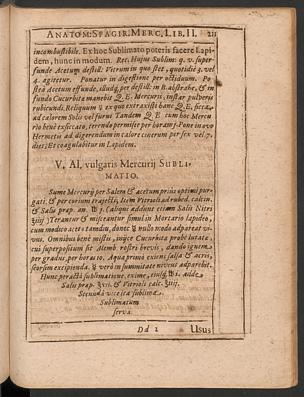 ANATOM: SPAGIR: MERC, LIB, II. 211
incombustibile. Ex hoc Sublimato poteris facere Lapi-
dem, hunc in modum. Rec. Hujus Sublim: q. v. super-
funde Acetum destill: Vitrum in quo stet, quotidie 3. vel
4. agitetur. Ponatur in digestione per octiduum. Po-
stea Acetum effunde, illudq, per destill: in B. abstrahe, & in
fundo Cucurbita manebit Q. E. Mercurij, instar pulveris
rubicundi. Reliquum ☿ ex quo extraxisti hanc Q. E. sicca,
ad calorem Solis vel furni Tandem Q. E. cum hoc Mercu-
rio benè exsiccato, terendo permisce per horam 1. Pone in ovo
Hermetis ad digerendum in calore cinerum per sex vel 7.
dies; Et coagulabitur in Lapidem.
V. Al. vulgaris Mercurij SUBLI-
MATIO.
Sume Mercurij per Salem & acetum prius optimi pur-
gati, & per corium trajecti, Item Vitrioli ad rubed. calcin.
& Salis prap. an.
Terantur & misceantur simul in Mortario lapideo,
cum modico aceto tandiu, donec ☿ nullo modo adpareat vi-
vus. Omnibus benè mistis, injice Cucurbita probè lutata,
cui superpositum sit Alemb: rostri brevis, dando ignem
per gradus per horas 10. Aqua primò exiens salsa & acris,
seorsim excipienda. ☿ verò in summitate niveus adparebit.
Hunc peractâ sublimatione, exime,
Salis prap. & Vitrioli calc.
Secundâ vice ita sublima.
Sublimatum
serva.
Dd 2 Usus